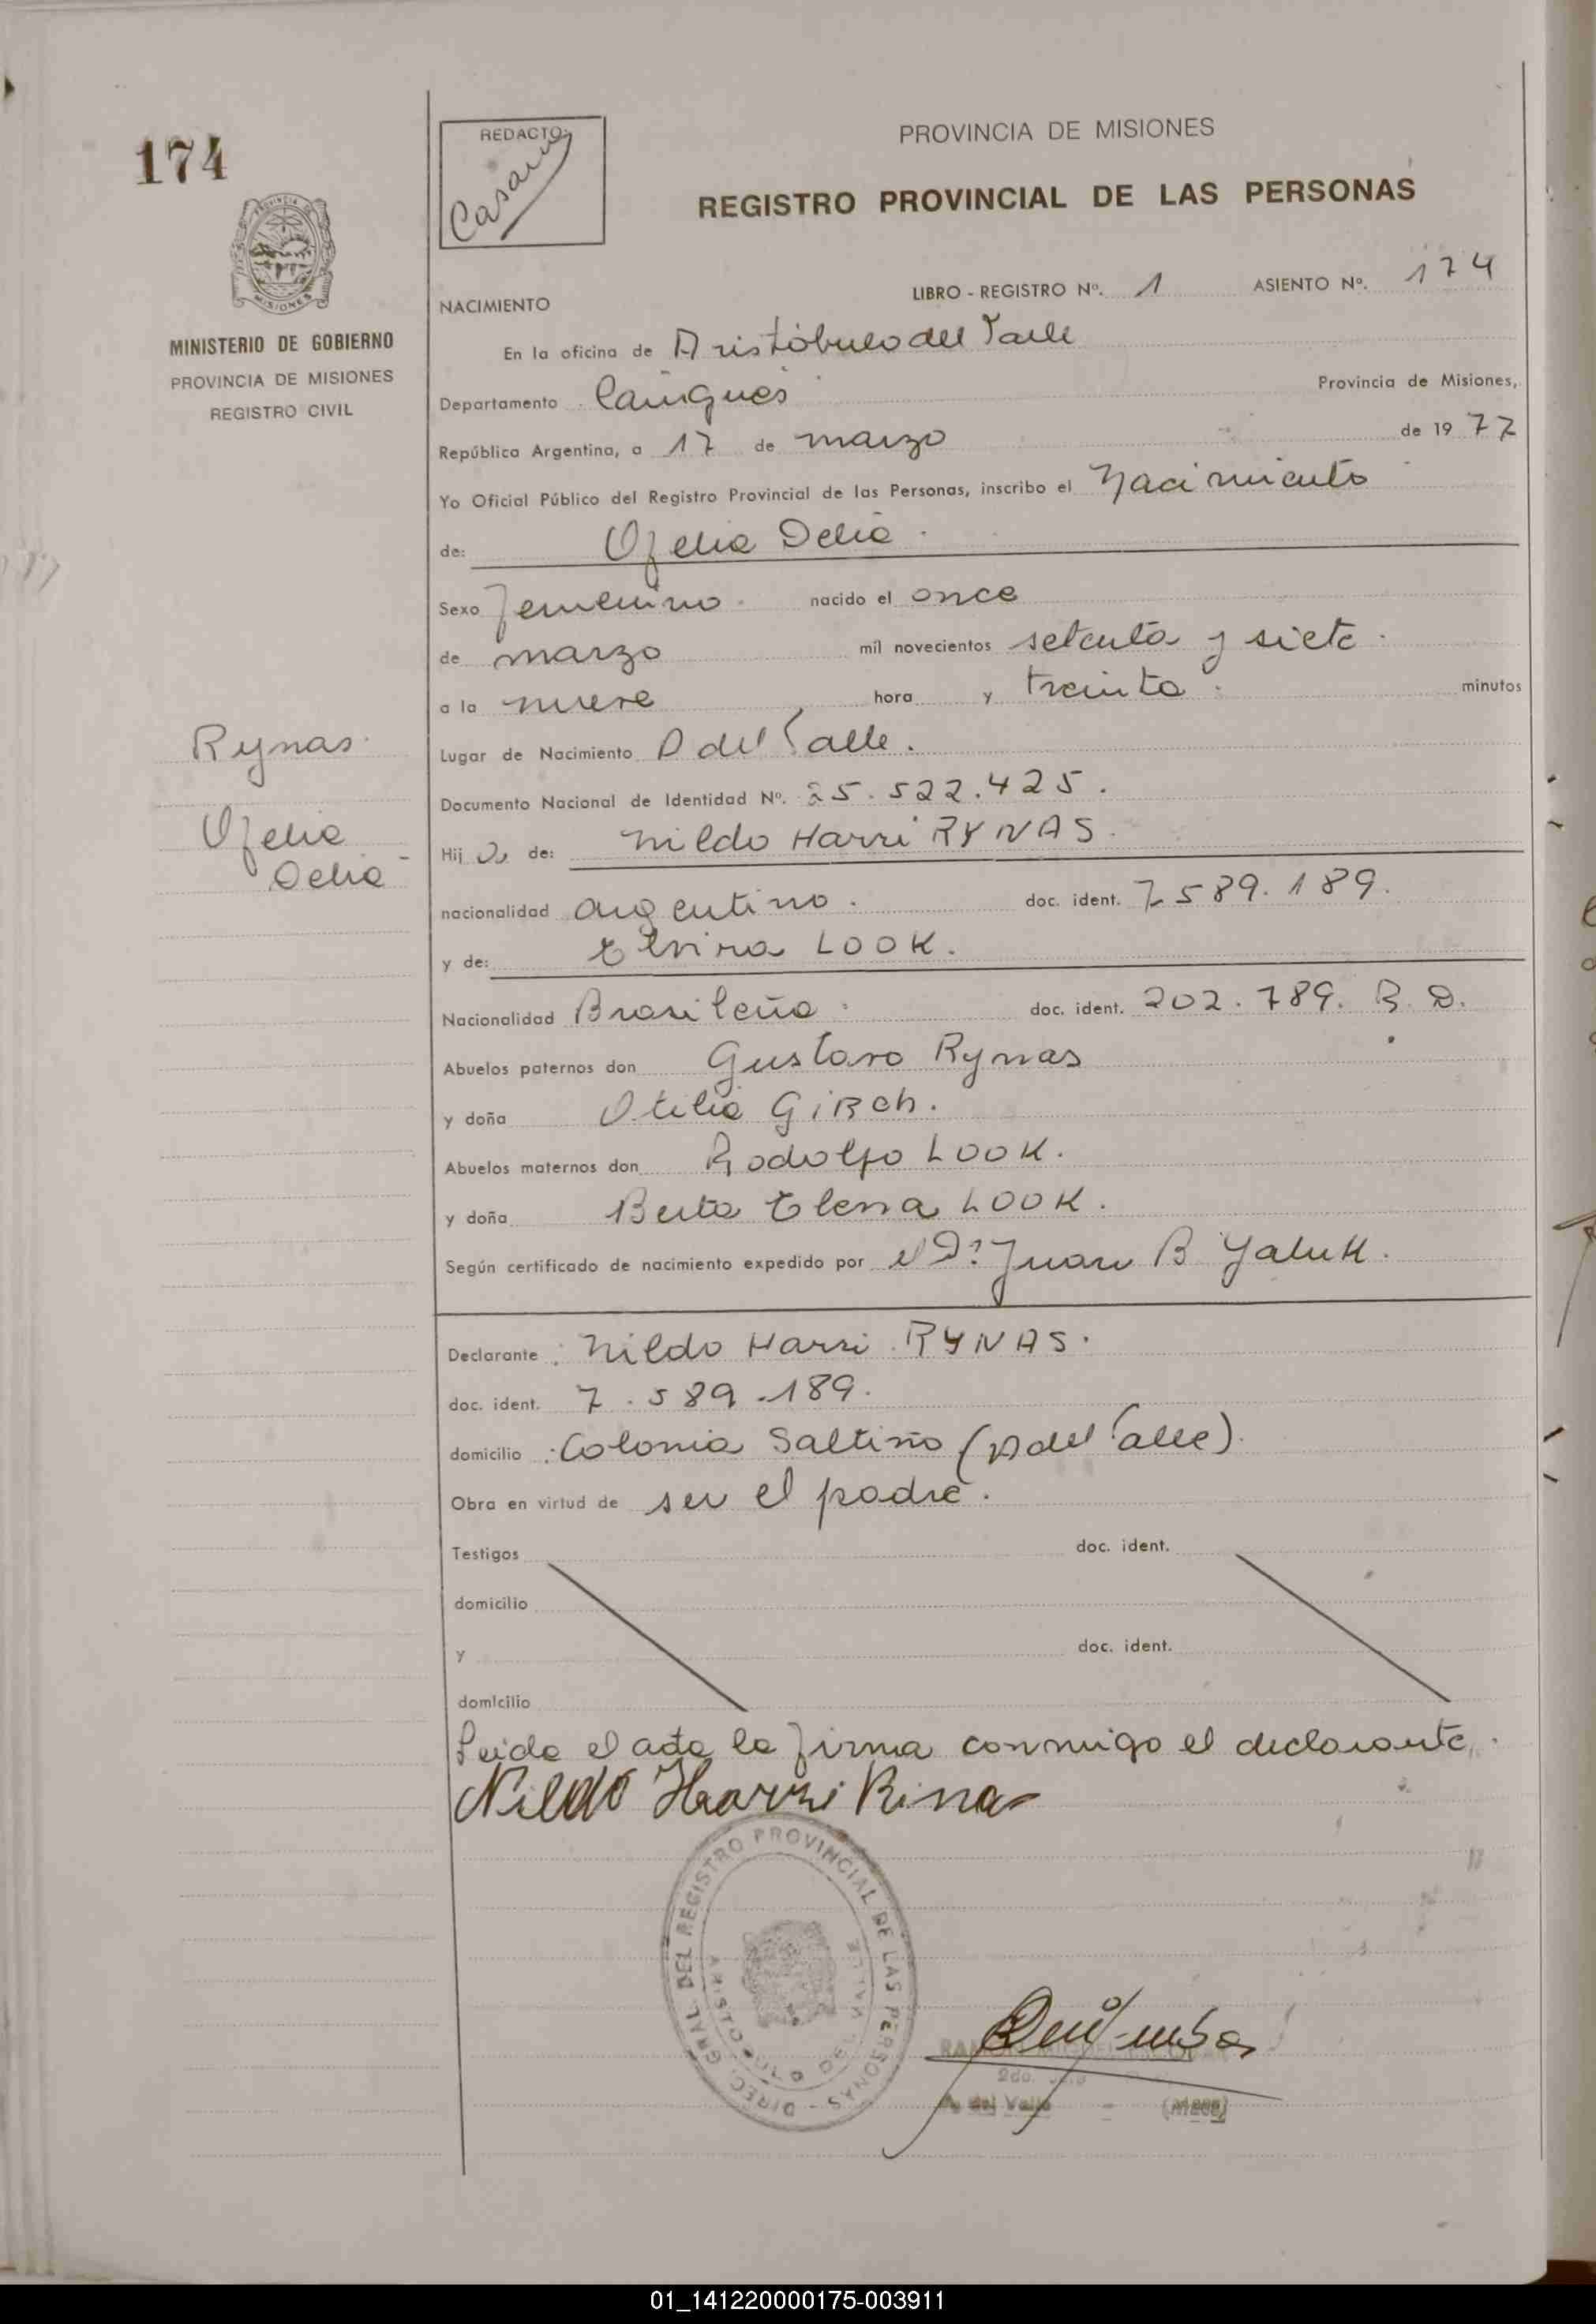 174
MINISTERIO DE GOBIERNO
PROVINCIA DE MISIONES
REGISTRO CIVIL
Rynas
Ofelia
Delia
REDACTO:
PROVINCIA DE MISIONES
REGISTRO PROVINCIAL DE LAS PERSONAS
LIBRO - REGISTRO Nº. 1 ASIENTO Nº. 174
NACIMIENTO
En la oficina de Aristóbulo del Valle
Departamento Cainguás Provincia de Misiones,
República Argentina, a 17 de marzo de 1977
Yo Oficial Público del Registro Provincial de las Personas, inscribo el Nacimiento
de: Ofelia Delia.
Sexo femenino. nacido el once
de marzo mil novecientos setenta y siete.
a la nueve hora y treinta. minutos
Lugar de Nacimiento A del Valle.
Documento Nacional de Identidad Nº. 25.522.425.
Hija de: Nildo Harri RYNAS.
nacionalidad argentino. doc. ident. 7.589.189.
y de: Elvira LOOK.
Nacionalidad Brasileña. doc. ident. 202.789. B. D.
Abuelos paternos don Gustavo Rynas
y doña Otilia GiRch.
Abuelos maternos don Rodolfo LOOK.
y doña Berta Elena LOOK.
Según certificado de nacimiento expedido por el Dr. Juan B Yaluk.
Declarante: Nildo Harri RYNAS.
doc. ident. 7.589.189.
domicilio: Colonia Saltiño (A del Valle).
Obra en virtud de ser el padre.
Testigos doc. ident.
domicilio
y doc. ident.
domicilio
Leida el acta la firma conmigo el declarante.
Nildo Harri Rinas
DIREC. GRAL. DEL REGISTRO PROVINCIAL DE LAS PERSONAS -
ARISTOBULO DEL VALLE
2do. Jefe
A. del Valle - (Mnes)
01_141220000175-003911